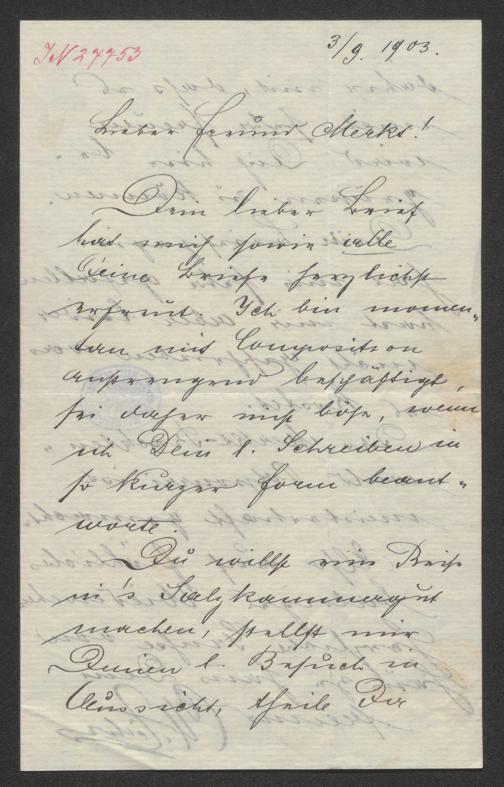 IN 27753
3/9. 1903.
Lieber Freund Merkt!
Dein lieber Brief
hat mich sowie alle
Deine Briefe herzlichst
erfreut. Ich bin momen„
tan mit Composition
anstrengend beschäftigt,
sei daher nicht böse, wenn
ich Dein l. Schreiben in
so kurzer Form beant„
worte.
Du willst eine Reise
in's Salzkammergut
machen, stellst mir
Deinen l. Besuch in
Aussicht, theile Dir